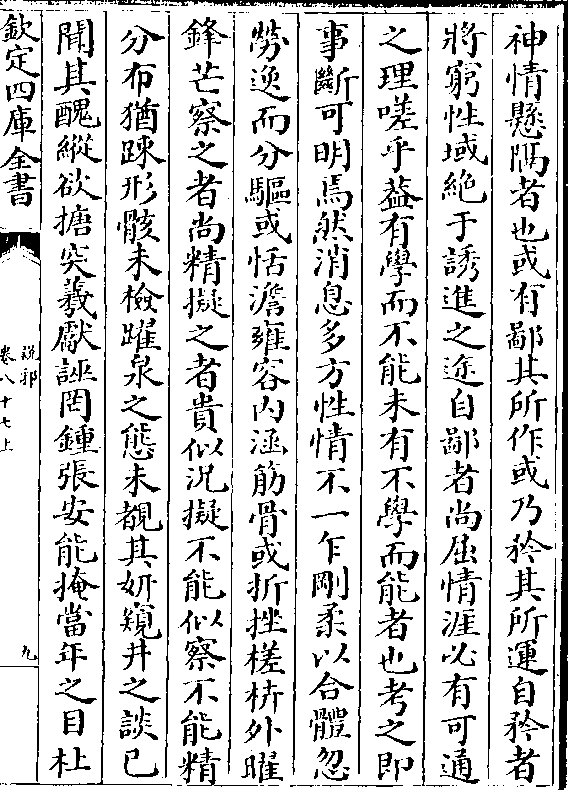 神情懸隔者也或有鄙其所作或乃矜其所運自矜者
將窮性域絶于誘進之途自鄙者尚屈情涯必有可通
之理嗟乎葢有學而不能未有不學而能者也考之即
事斷可明焉然消息多方性情不一乍剛柔以合體忽
勞逸而分驅或恬澹雍容内涵筋骨或折挫槎枿外曜
鋒芒察之者尚精擬之者貴似況擬不能似察不能精
分布猶踈形骸未檢躍泉之態未覩其妍窺井之談已
聞其醜縱欲搪突羲獻誣罔鍾張安能掩當年之目杜
欽定四庫全書
說郛
卷八十七上
九